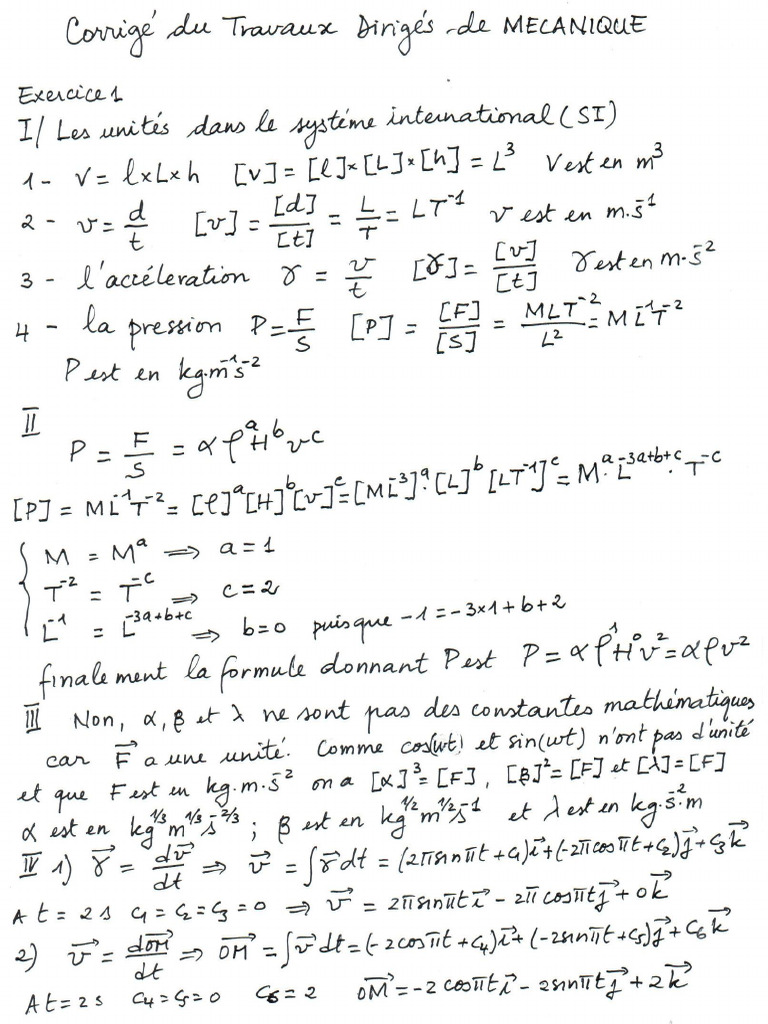 Corrigé du Travaux Dirigés de MECANIQUE
Exercice 1
I/ Les unités dans le systéme international (SI)
1- V = l×L×h [V] = [l]×[L]×[h] = L³ V est en m³
2 - v = d/t [v] = [d]/[t] = L/T = LT⁻¹ v est en m.s⁻¹
3 - l'accéleration γ = v/t [γ] = [v]/[t] γ est en m.s⁻²
4 - la pression P = F/S [P] = [F]/[S] = MLT⁻²/L² = ML⁻¹T⁻²
P est en kg.m⁻¹s⁻²
II
P = F/S = α ρᵃ Hᵇ vᶜ
[P] = ML⁻¹T⁻² = [ρ]ᵃ[H]ᵇ[v]ᶜ = [ML⁻³]ᵃ.[L]ᵇ [LT⁻¹]ᶜ = Mᵃ.L⁻³ᵃ⁺ᵇ⁺ᶜ.T⁻ᶜ
M = Mᵃ ⟹ a = 1
T⁻² = T⁻ᶜ ⟹ c = 2
L⁻¹ = L⁻³ᵃ⁺ᵇ⁺ᶜ ⟹ b = 0 puisque -1 = -3×1+b+2
finalement la formule donnant P est P = α ρ¹H⁰v² = αρv²
III Non, α, β et λ ne sont pas des constantes mathématiques
car F⃗ a une unité. Comme cos(wt) et sin(wt) n'ont pas d'unité
et que F est en kg.m.s⁻² on a [α]³ = [F], [β]² = [F] et [λ] = [F]
α est en kg^1/3 m^1/3 s^-2/3 ; β est en kg^1/2 m^1/2 s⁻¹ et λ est en kg.s⁻².m
IV 1) γ⃗ = dv⃗/dt ⟹ v⃗ = ∫γ⃗ dt = (2π sin πt + C₁)i⃗ + (-2π cos πt + C₂)j⃗ + C₃k⃗
A t = 2 s C₁ = C₂ = C₃ = 0 ⟹ v⃗ = 2π sin πt i⃗ - 2π cos πt j⃗ + 0k⃗
2) v⃗ = dOM⃗/dt ⟹ OM⃗ = ∫v⃗ dt = (-2 cos πt + C₄)i⃗ + (-2 sin πt + C₅)j⃗ + C₆k⃗
A t = 2 s C₄ = C₅ = 0 C₆ = 2 OM⃗ = -2 cos πt i⃗ - 2 sin πt j⃗ + 2k⃗